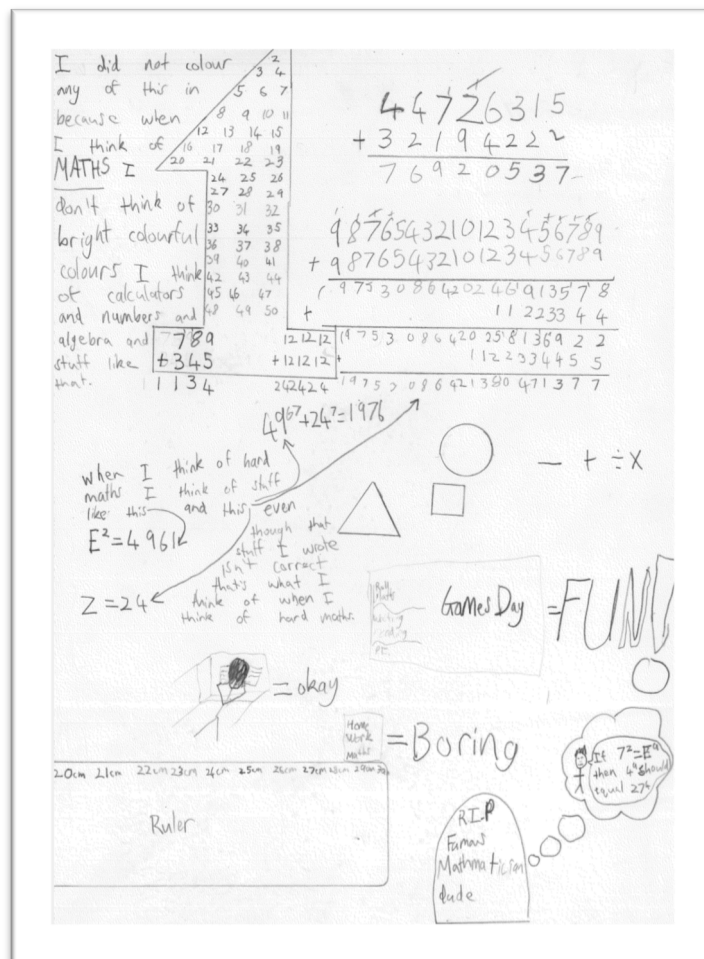 I did not colour
any of this in
because when
I think of
MATHS I
don't think of
bright colourful
colours I think
of calculators
and numbers and
algebra and
stuff like
that.
2
3 4
5 6 7
8 9 10 11
12 13 14 15
16 17 18 19
20 21 22 23
24 25 26
27 28 29
30 31 32
33 34 35
36 37 38
39 40 41
42 43 44
45 46 47
48 49 50
789
+345
1134
121212
+121212
242424
44726315
+32194222
76920537
9876543210123456789
+9876543210123456789
19753086420246913578
+ 11223344
19753086420258136922
+ 1122334455
19753086421380471377
4⁹⁶⁷+24⁷=1976
when I think of hard
maths I think of stuff
like this and this even
though that
stuff I wrote
isn't correct
that's what I
think of when I
think of hard maths.
E²=4961
Z=24
− + ÷ x
Maths
Writing
Reading
P.E.
Games Day
=FUN!
=okay
Home
Work
Maths
=Boring
20cm 21cm 22cm 23cm 24cm 25cm 26cm 27cm 28cm 29cm
Ruler
If 7²=E⁹
then 4⁹ should
equal 274
R.I.P
Famous
Mathmatician
dude